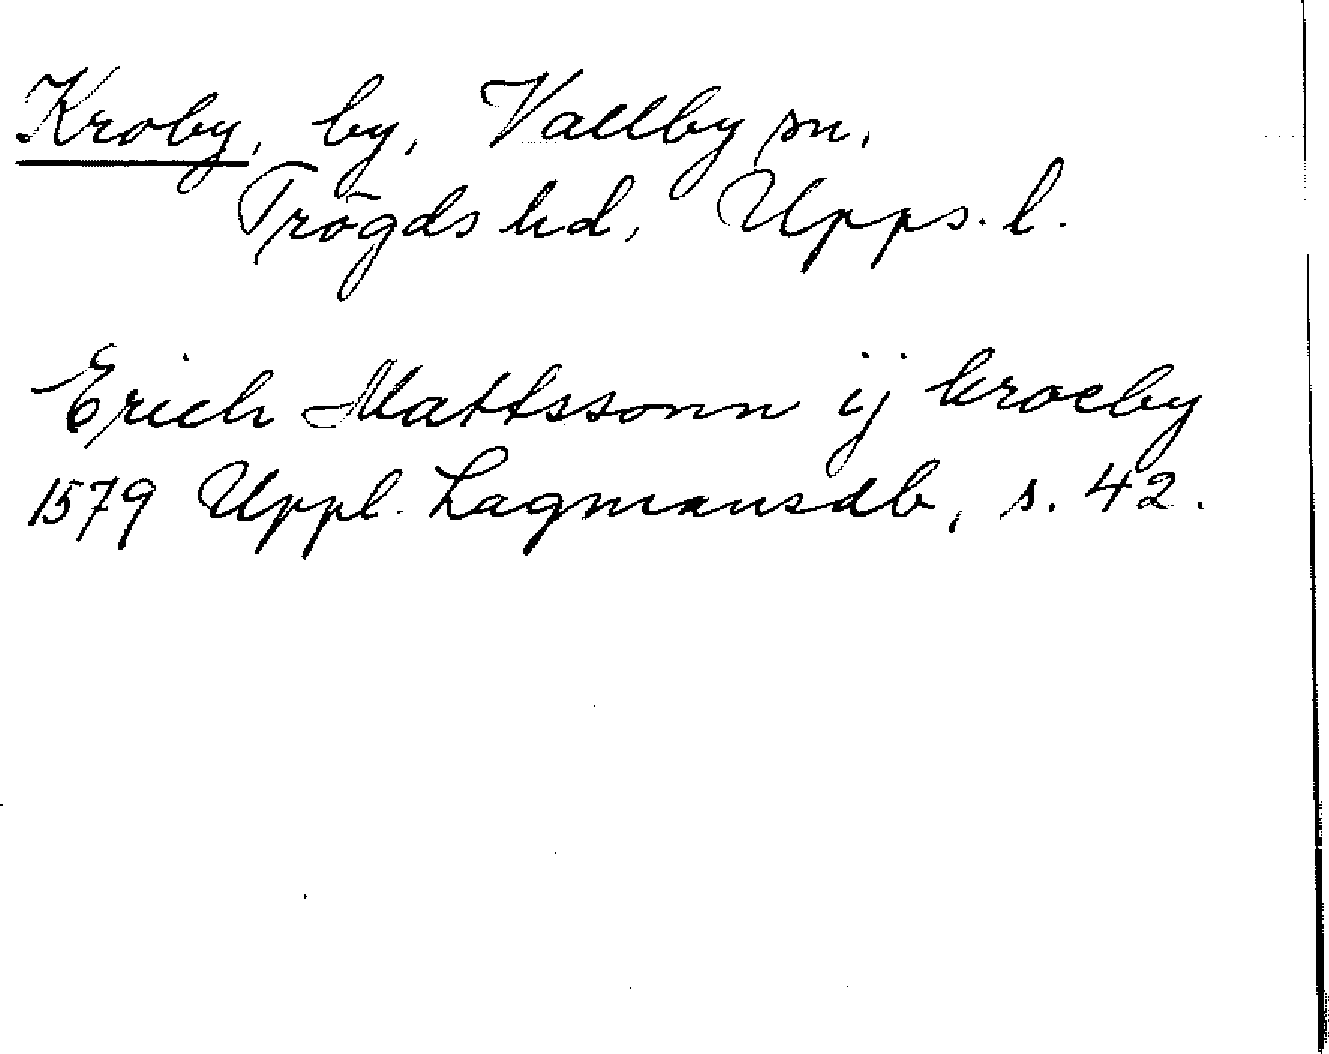 Kroby, by, Vallby sn,
Trögds hd, Upps. l.
Erich Mattssonn ij kroeby
1579 Uppl. Lagmansdb, s. 42.